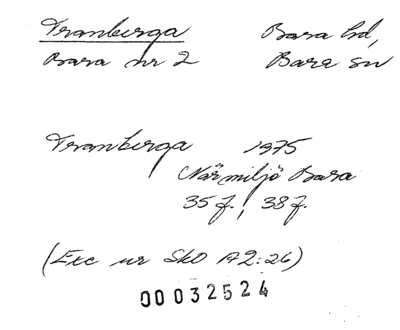 Tranberga Bara hd,
Bara nr 2 Bara sn
Tranberga 1975
Närmiljö Bara
35 f., 38 f.
(Exc ur SkO A2:26)
00032524